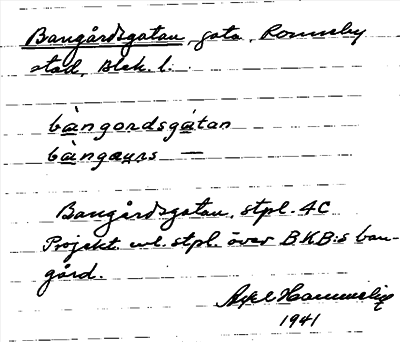 Bangårdsgatan, gata, Ronneby
stad, Blek. l.
bàngordsgátan
bàngaurs —
Bangårdsgatan, stpl. 4C
Projekt enl. stpl. över B.K.B:s ban-
gård.
Axel Hammelig
1941